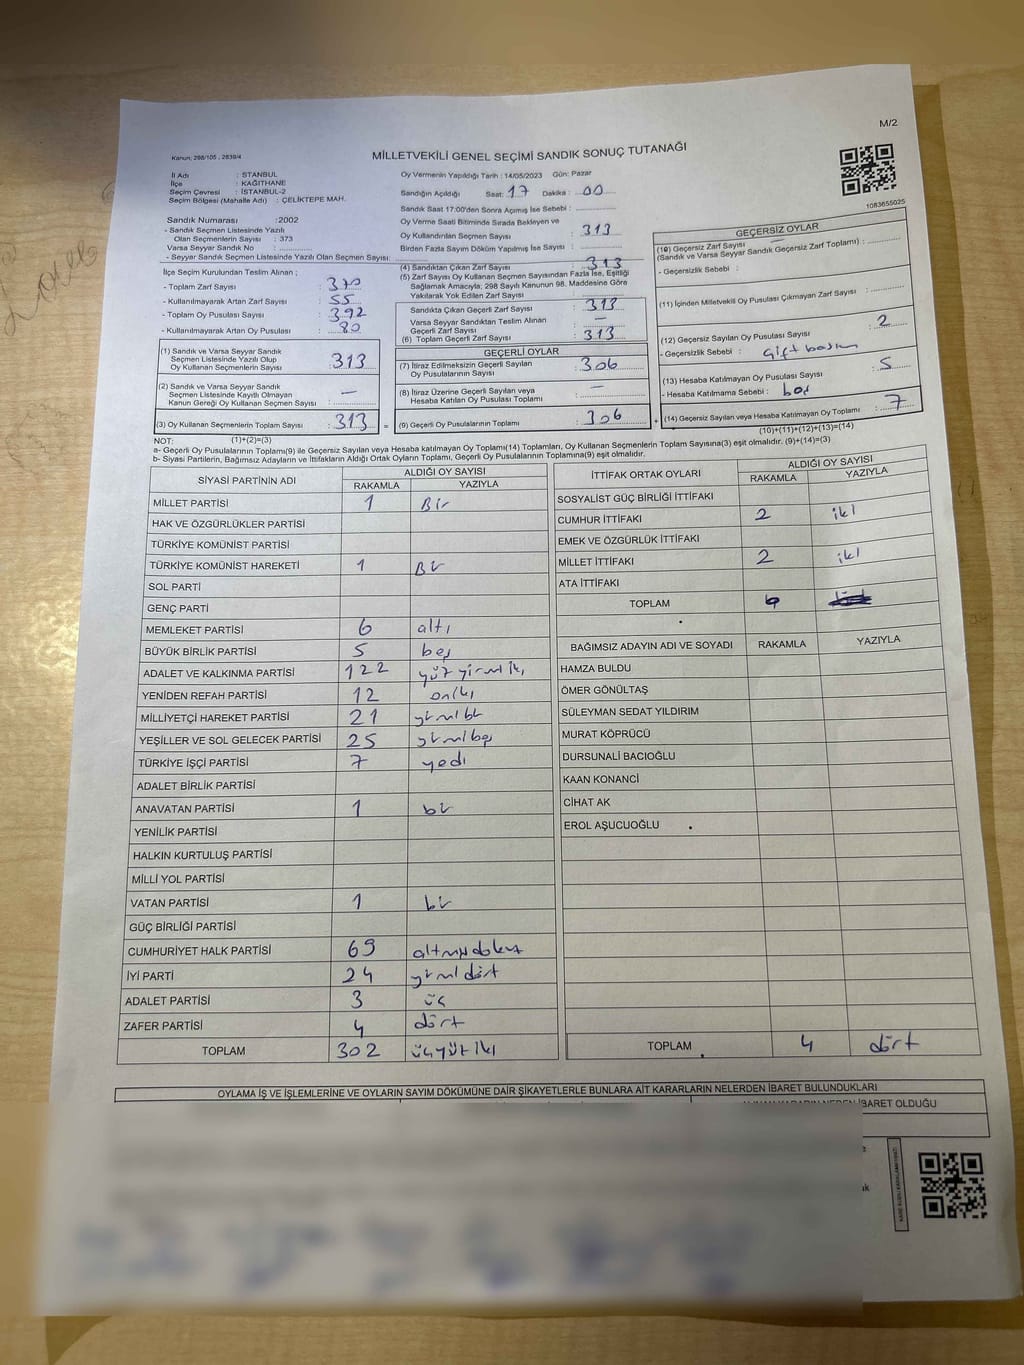 M/2
Kanun; 298/105 , 2839/4
MİLLETVEKİLİ GENEL SEÇİMİ SANDIK SONUÇ TUTANAĞI
İl Adı : STANBUL
İlçe : KAĞITHANE
Seçim Çevresi : İSTANBUL-2
Seçim Bölgesi (Mahalle Adı) : ÇELİKTEPE MAH.
Sandık Numarası :2002
- Sandık Seçmen Listesinde Yazılı
Olan Seçmenlerin Sayısı : 373
Varsa Seyyar Sandık No :
- Seyyar Sandık Seçmen Listesinde Yazılı Olan Seçmen Sayısı:
Oy Vermenin Yapıldığı Tarih : 14/05/2023 Gün: Pazar
Sandığın Açıldığı Saat: 17 Dakika : 00
Sandık Saat 17:00'den Sonra Açımış İse Sebebi :
Oy Verme Saati Bitiminde Sırada Bekleyen ve
Oy Kullandırılan Seçmen Sayısı : 313
Birden Fazla Sayım Döküm Yapılmış İse Sayısı :
1083655025
İlçe Seçim Kurulundan Teslim Alınan ;
- Toplam Zarf Sayısı : 370
- Kullanılmayarak Artan Zarf Sayısı : 55
- Toplam Oy Pusulası Sayısı : 392
- Kullanılmayarak Artan Oy Pusulası : 80
(1) Sandık ve Varsa Seyyar Sandık
Seçmen Listesinde Yazılı Olup
Oy Kullanan Seçmenlerin Sayısı : 313
(2) Sandık ve Varsa Seyyar Sandık
Seçmen Listesinde Kayıtlı Olmayan
Kanun Gereği Oy Kullanan Seçmen Sayısı : —
(3) Oy Kullanan Seçmenlerin Toplam Sayısı : 313 =
(4) Sandıktan Çıkan Zarf Sayısı : 313
(5) Zarf Sayısı Oy Kullanan Seçmen Sayısından Fazla İse, Eşitliği
Sağlamak Amacıyla, 298 Sayılı Kanunun 98. Maddesine Göre
Yakılarak Yok Edilen Zarf Sayısı :
Sandıkta Çıkan Geçerli Zarf Sayısı : 313
Varsa Seyyar Sandıktan Teslim Alınan
Geçerli Zarf Sayısı : —
(6) Toplam Geçerli Zarf Sayısı : 313
GEÇERLİ OYLAR
(7) İtiraz Edilmeksizin Geçerli Sayılan
Oy Pusulalarının Sayısı : 306
(8) İtiraz Üzerine Geçerli Sayılan veya
Hesaba Katılan Oy Pusulası Toplamı : —
(9) Geçerli Oy Pusulalarının Toplamı : 306 +
GEÇERSİZ OYLAR
(10) Geçersiz Zarf Sayısı
(Sandık ve Varsa Seyyar Sandık Geçersiz Zarf Toplamı) :
- Geçersizlik Sebebi :
(11) İçinden Milletvekili Oy Pusulası Çıkmayan Zarf Sayısı :
(12) Geçersiz Sayılan Oy Pusulası Sayısı : 2
- Geçersizlik Sebebi : Çift basım
(13) Hesaba Katılmayan Oy Pusulası Sayısı : 5
- Hesaba Katılmama Sebebi : boş
(14) Geçersiz Sayılan veya Hesaba Katılmayan Oy Toplamı : 7
(10)+(11)+(12)+(13)=(14)
NOT: (1)+(2)=(3)
a- Geçerli Oy Pusulalarının Toplamı(9) ile Geçersiz Sayılan veya Hesaba katılmayan Oy Toplamı(14) Toplamları, Oy Kullanan Seçmenlerin Toplam Sayısına(3) eşit olmalıdır. (9)+(14)=(3)
b- Siyasi Partilerin, Bağımsız Adayların ve İttifakların Aldığı Ortak Oyların Toplamı, Geçerli Oy Pusulalarının Toplamına(9) eşit olmalıdır.
SİYASİ PARTİNİN ADI ALDIĞI OY SAYISI
RAKAMLA YAZIYLA
MİLLET PARTİSİ 1 Bir
HAK VE ÖZGÜRLÜKLER PARTİSİ
TÜRKİYE KOMÜNİST PARTİSİ
TÜRKİYE KOMÜNİST HAREKETİ 1 Bir
SOL PARTİ
GENÇ PARTİ
MEMLEKET PARTİSİ 6 altı
BÜYÜK BİRLİK PARTİSİ 5 beş
ADALET VE KALKINMA PARTİSİ 122 yüz yirmi iki
YENİDEN REFAH PARTİSİ 12 oniki
MİLLİYETÇİ HAREKET PARTİSİ 21 yirmi bir
YEŞİLLER VE SOL GELECEK PARTİSİ 25 yirmi beş
TÜRKİYE İŞÇİ PARTİSİ 7 yedi
ADALET BİRLİK PARTİSİ
ANAVATAN PARTİSİ 1 bir
YENİLİK PARTİSİ
HALKIN KURTULUŞ PARTİSİ
MİLLİ YOL PARTİSİ
VATAN PARTİSİ 1 bir
GÜÇ BİRLİĞİ PARTİSİ
CUMHURİYET HALK PARTİSİ 69 altmış dokuz
İYİ PARTİ 24 yirmi dört
ADALET PARTİSİ 3 üç
ZAFER PARTİSİ 4 dört
TOPLAM 302 üçyüz iki
İTTİFAK ORTAK OYLARI ALDIĞI OY SAYISI
RAKAMLA YAZIYLA
SOSYALİST GÜÇ BİRLİĞİ İTTİFAKI
CUMHUR İTTİFAKI 2 iki
EMEK VE ÖZGÜRLÜK İTTİFAKI
MİLLET İTTİFAKI 2 iki
ATA İTTİFAKI
TOPLAM
BAĞIMSIZ ADAYIN ADI VE SOYADI RAKAMLA YAZIYLA
HAMZA BULDU
ÖMER GÖNÜLTAŞ
SÜLEYMAN SEDAT YILDIRIM
MURAT KÖPRÜCÜ
DURSUNALİ BACIOĞLU
KAAN KONANCİ
CİHAT AK
EROL AŞUCUOĞLU
TOPLAM 4 dört
OYLAMA İŞ VE İŞLEMLERİNE VE OYLARIN SAYIM DÖKÜMÜNE DAİR ŞİKAYETLERLE BUNLARA AİT KARARLARIN NELERDEN İBARET BULUNDUKLARI
İBARET OLDUĞU